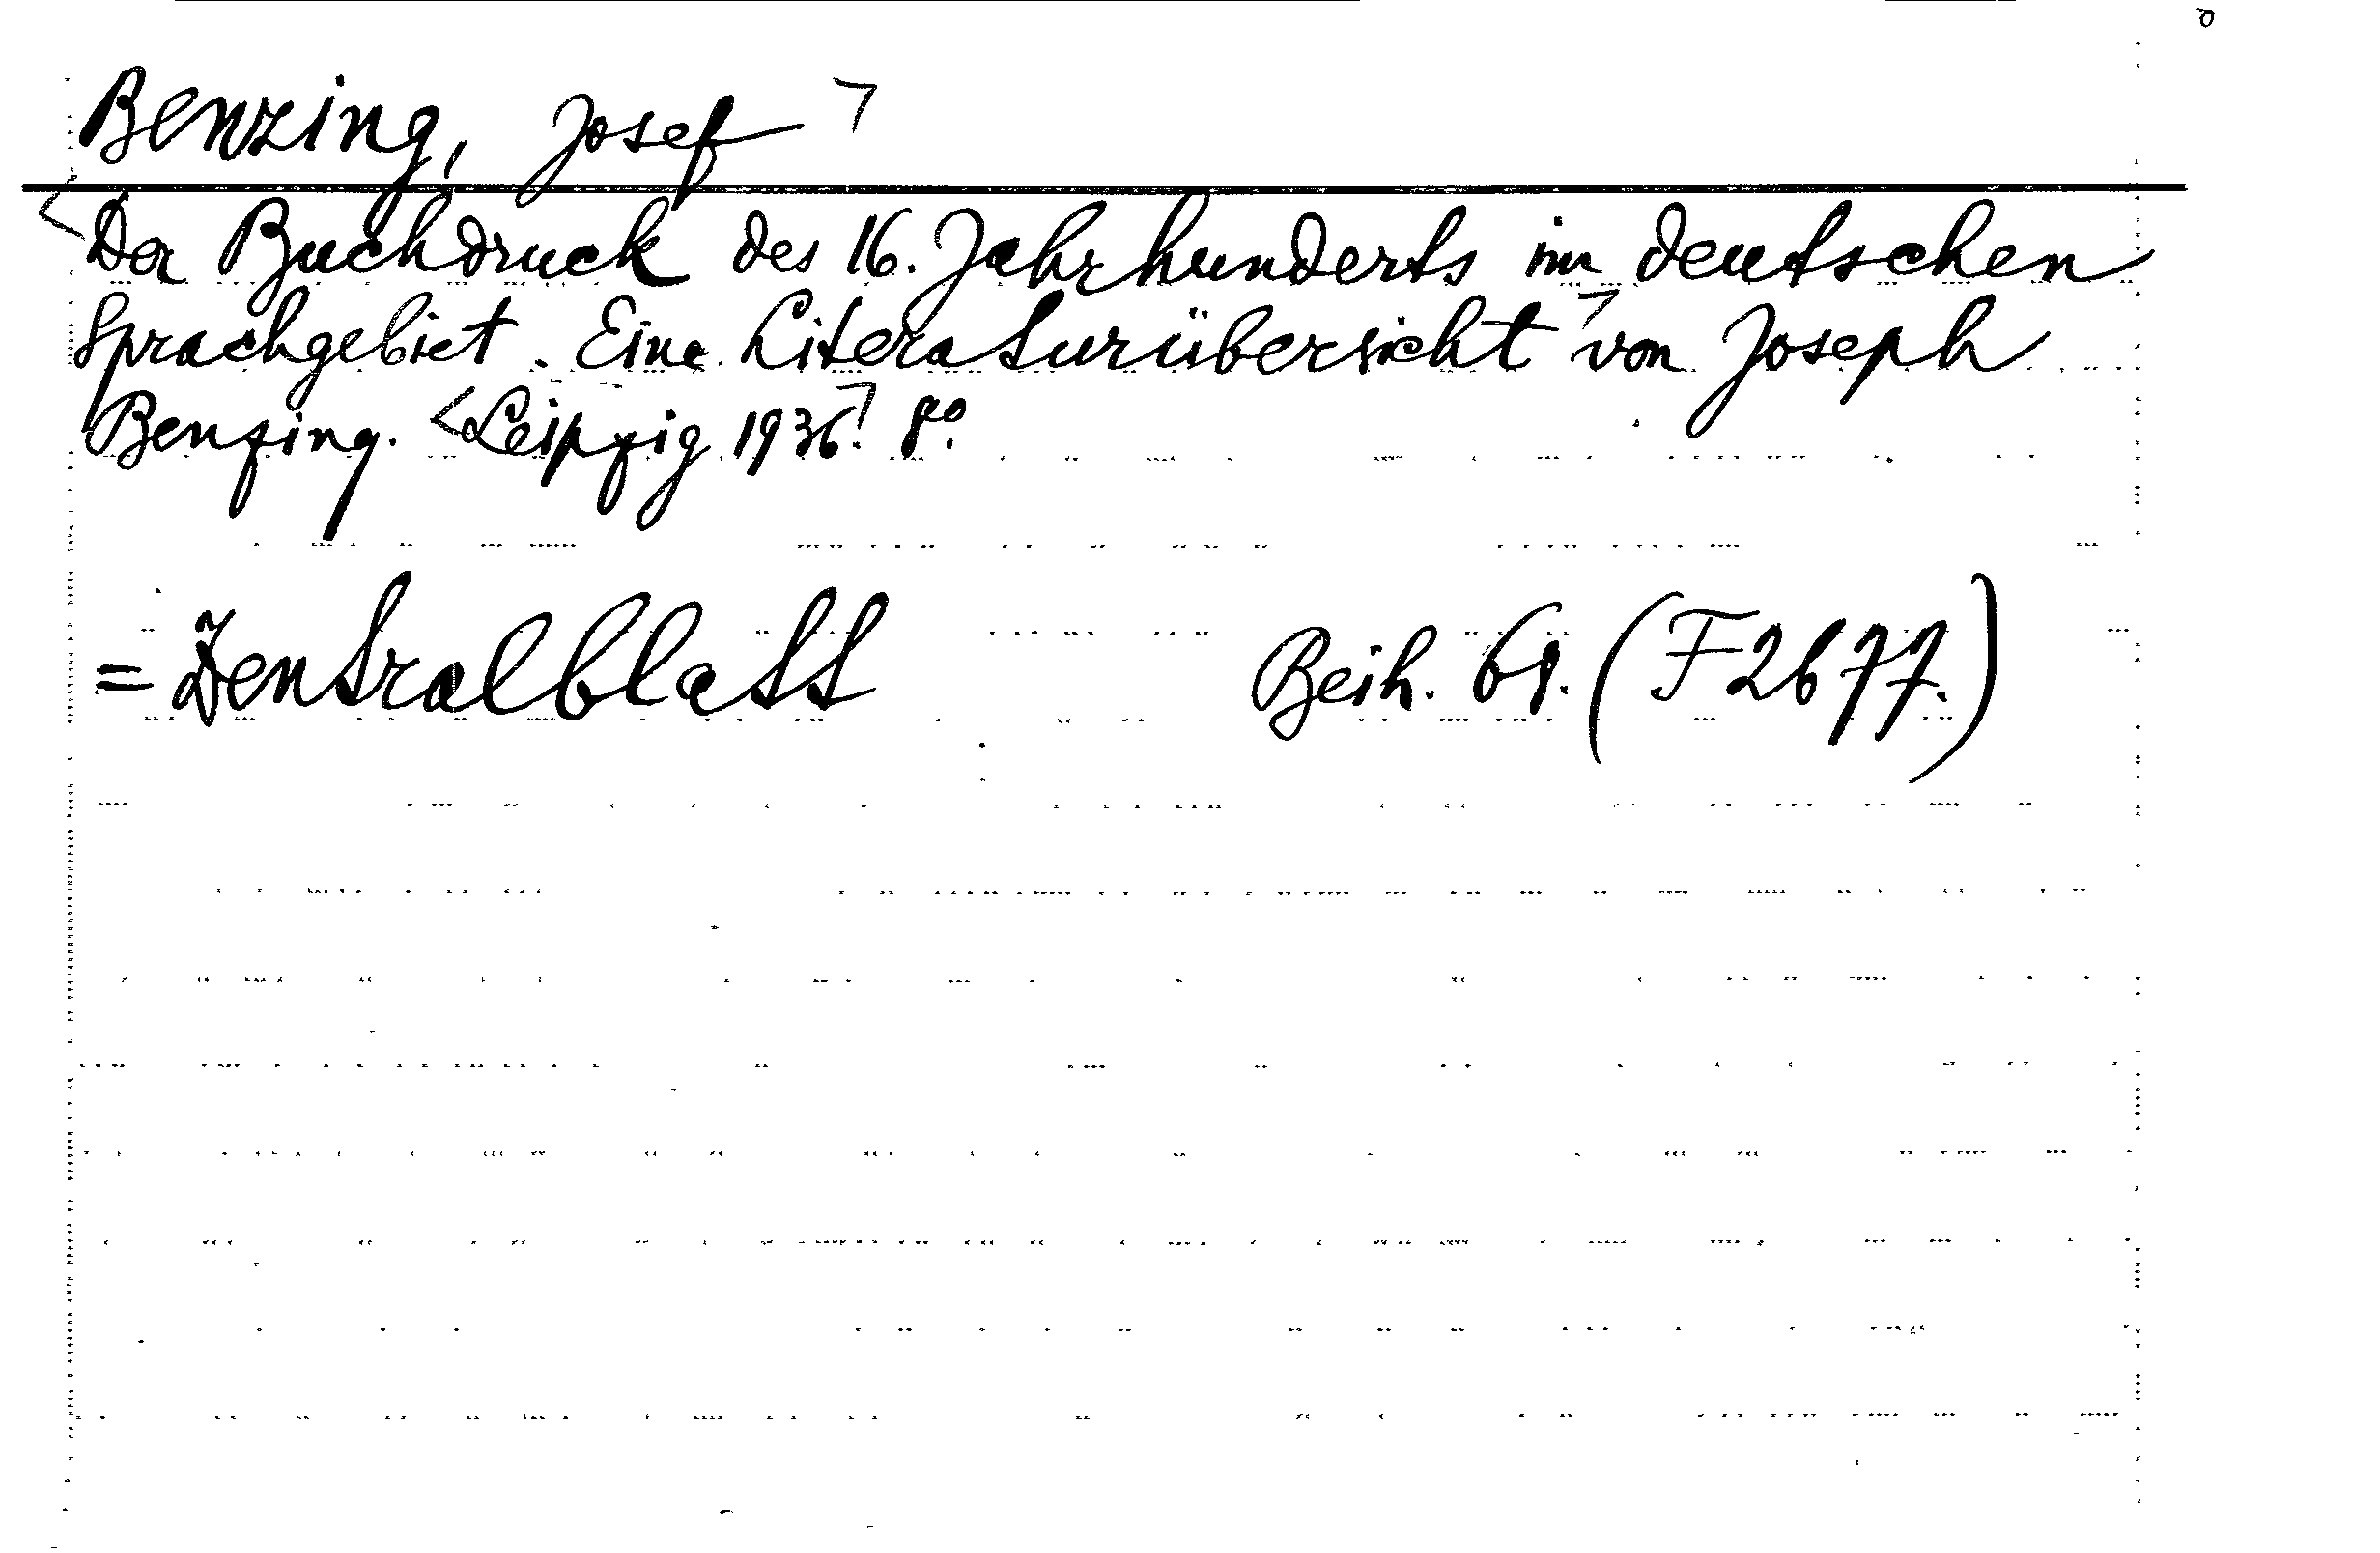 Benzing, Josef
Der Buchdruck des 16. Jahrhunderts im deutschen
Sprachgebiet. Eine Literaturübersicht von Joseph
Benzing. Leipzig 1936. 8°.
= Zentralblatt Beih. 68. (F 2677.)